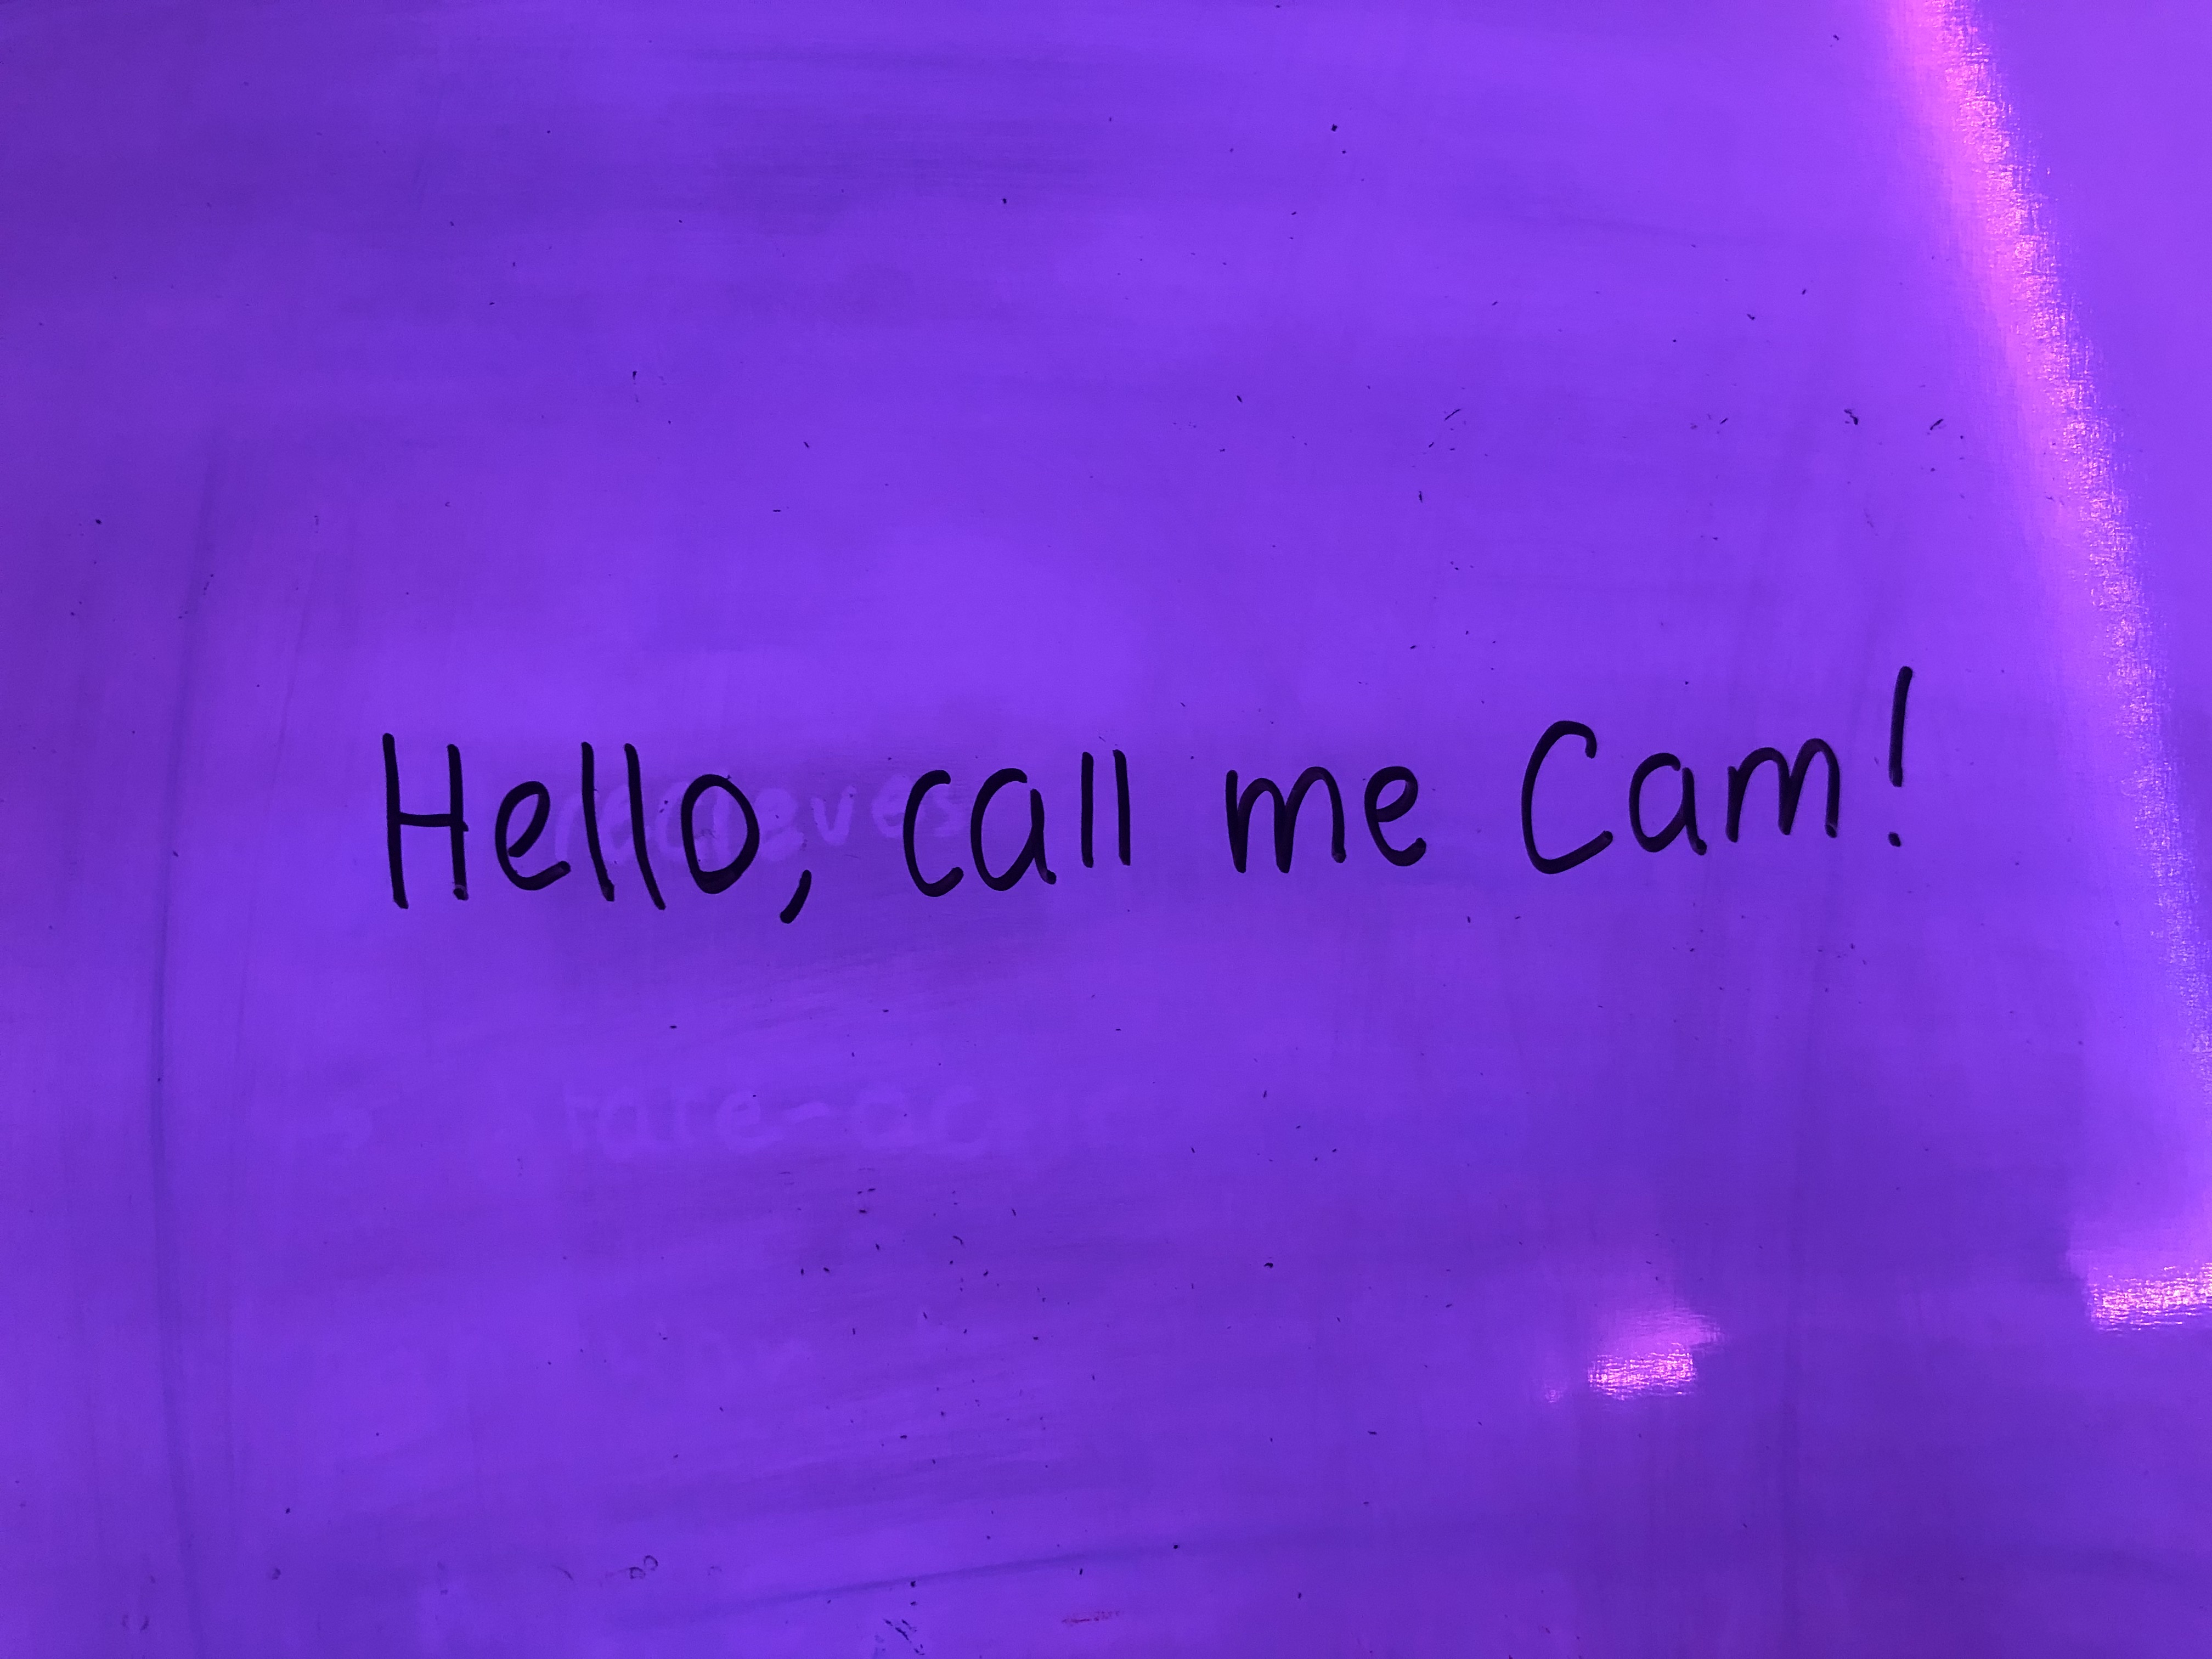 Hello, call me Cam!